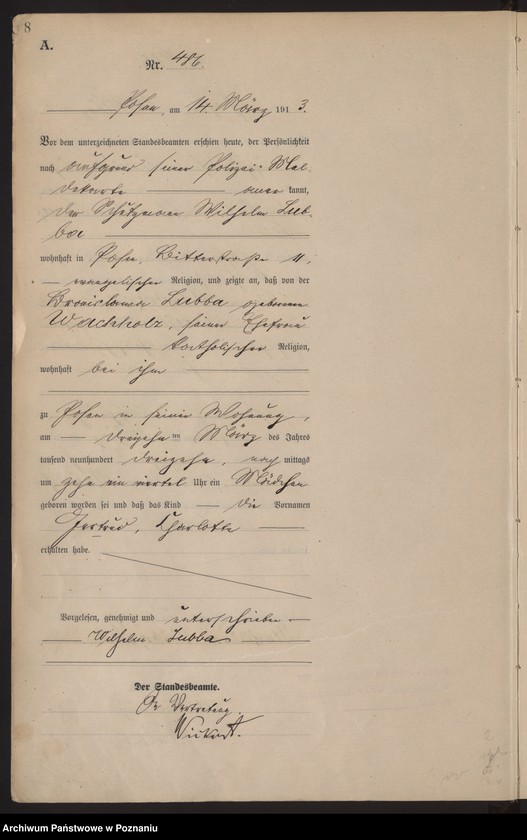 8
A.
Nr. 486.
Posen, am 14. März 1913.
Vor dem unterzeichneten Standesbeamten erschien heute, der Persönlichkeit
nach aufgrund seiner Polizei-Mel-
dekarte anerkannt,
der Schutzmann Wilhelm Lub-
ba
wohnhaft in Posen, Ritterstraße 11;
evangelischer Religion, und zeigte an, daß von der
Bronislawa Lubba geborenen
Wachholz, seiner Ehefrau
katholischer Religion,
wohnhaft bei ihm
zu Posen in seiner Wohnung,
am dreizehnten März des Jahres
tausend neunhundert dreizehn, nachmittags
um zehn ein viertel Uhr ein Mädchen
geboren worden sei und daß das Kind die Vornamen
Gertrud, Charlotte
erhalten habe.
Vorgelesen, genehmigt und unterschrieben
Wilhelm Lubba
Der Standesbeamte.
In Vertretung.
Archiwum Państwowe w Poznaniu